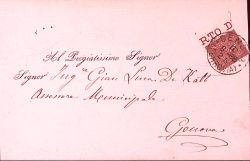 R.TO D
Al Pregiatissimo Signor
Signor Ing.re Gian Luca De Katt
Assessore Municipale
Genova